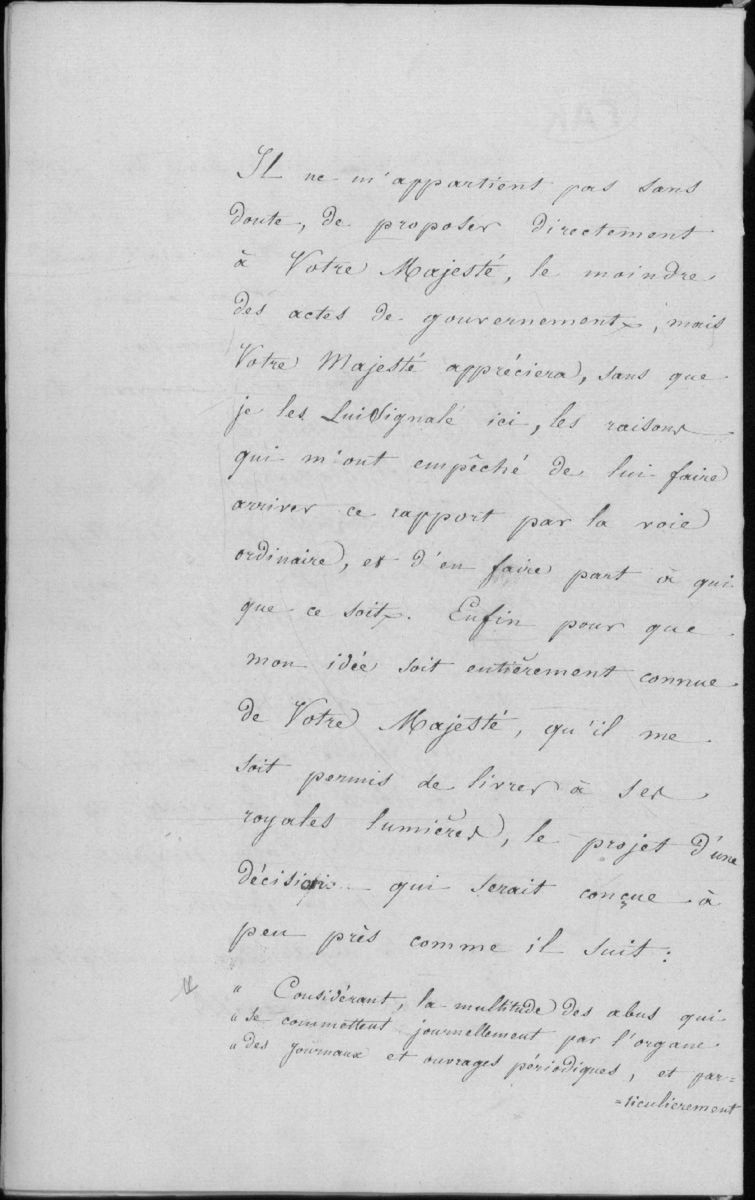 Il ne m'appartient pas sans
doute, de proposer directement
à Votre Majesté, le moindre
des actes de gouvernement, mais
Votre Majesté appréciera, sans que
je les Lui Signale ici, les raisons
qui m'ont empêché de lui faire
arriver ce rapport par la voie
ordinaire, et d'en faire part à qui
que ce soit. Enfin pour que
mon idée soit entièrement connue
de Votre Majesté, qu'il me
soit permis de livrer à ses
royales lumières, le projet d'une
décision qui serait conçue à
peu près comme il suit:
" Considérant, la multitude des abus qui
" se commettent journellement par l'organe
" des journaux et ouvrages périodiques, et par=
=ticulierement